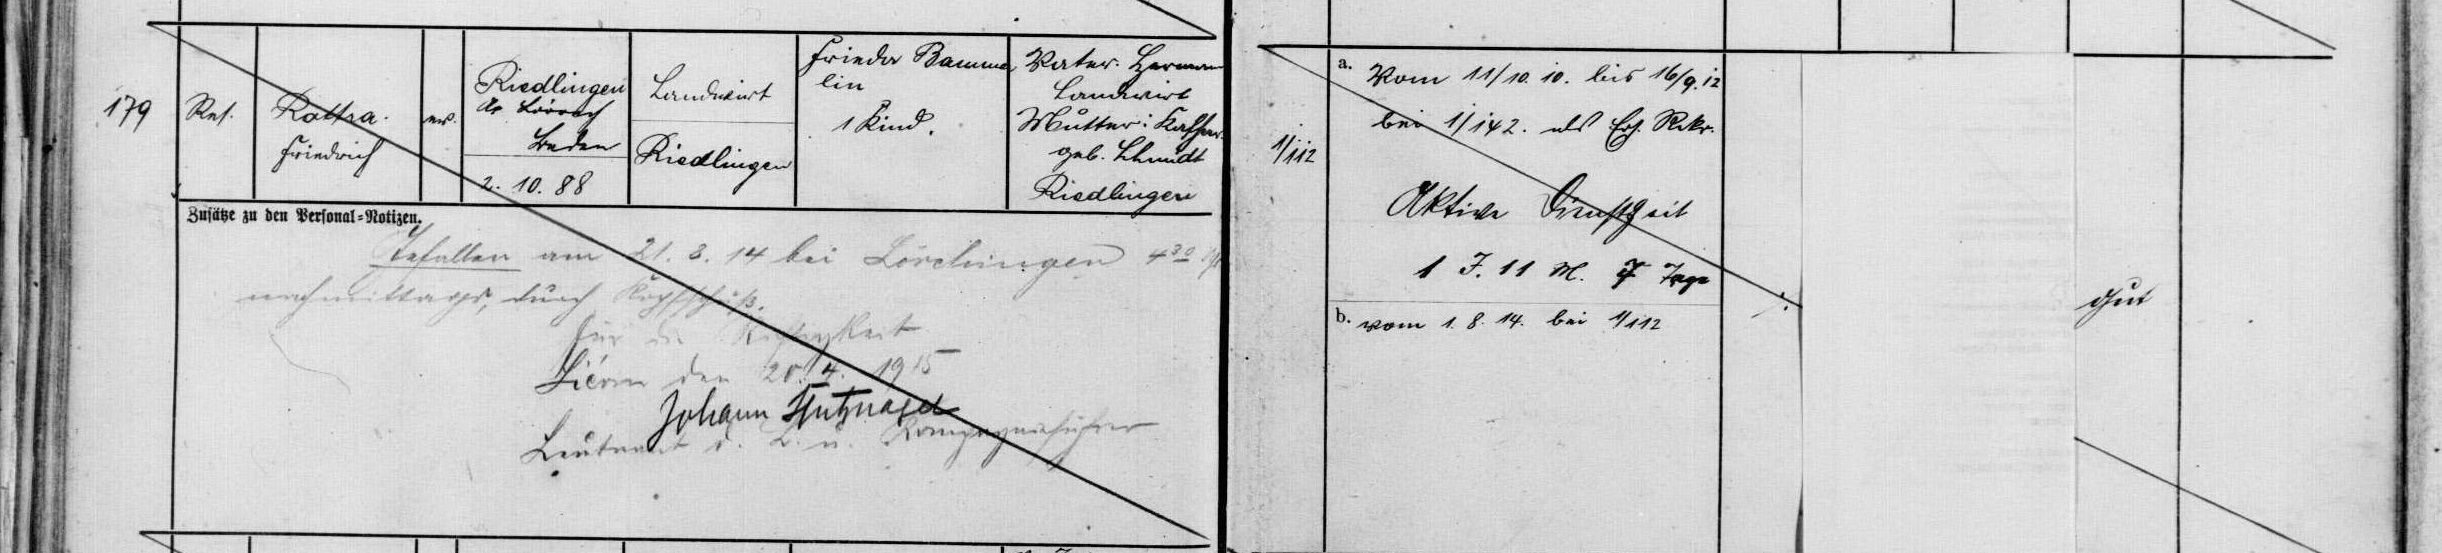 179
Res.
Rottra.
Friedrich
ev.
Riedlingen
Lörrach
Baden
2. 10. 88
Landwirt
Riedlingen
Frieda Bamme
lin
1 Kind.
Vater: Hermann
Landwirt
Mutter: Kathar.
geb. Schmidt
Riedlingen
Zusätze zu den Personal=Notizen.
Gefallen am 21. 8. 14 bei Lörchingen 4³⁰
nachmittags, durch Kopfschuß.
Für die Richtigkeit
den 20. 4. 1915
Johann
Leutnant d. L. u. Kompagnieführer
1/112
a. Vom 11/10. 10. bis 16/9. 12
bei 1/142. als Rekr.
Aktive Dienstzeit
1 J. 11 M. 7 Tage
b. vom 1. 8. 14. bei 1/112
gut